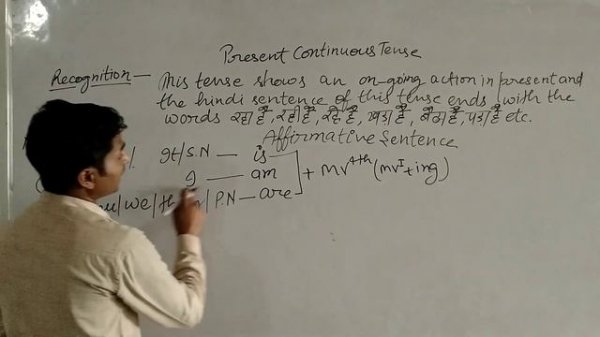 Present Continuous Tense
Recognition — This tense shows an on-going action in present and
the hindi sentence of this tense ends with the
words रहा है, रही है, रहे हैं, खड़ा है, बैठा है, पड़ा है etc.
Affirmative Sentence
It/S.N — is
I — am + MV4th (MVI+ing)
/we/ /P.N — are